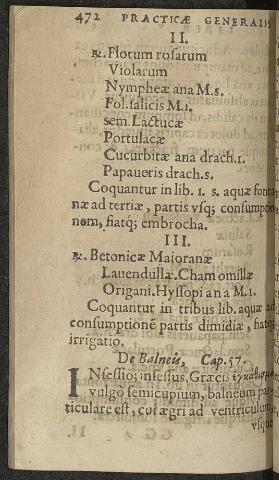 472 PRACTICÆ GENERALIS
II.
℞. Florum rosarum
Violarum
Nympheæ ana M.s.
Fol. salicis M.1.
sem. Lactucæ
Portulacæ
Cucurbitæ ana drach.1.
Papaueris drach.s.
Coquantur in lib. 1. s. aquæ fonta
næ ad tertiæ, partis vsq; consumptio
nem, fiatq; embrocha.
III.
℞. Betonicæ Maioranæ
Lauendullæ. Chamomillæ
Origani. Hyssopi ana M.1.
Coquantur in tribus lib. aquæ ad
consumptionē partis dimidiæ, fiatq;
irrigatio.
De Balneis, Cap. 57.
INsessio; insessus, Græcis ἐγκάθισμα
vulgò semicupium, balneum par-
ticulare est, cui ægri ad ventriculum
vsque